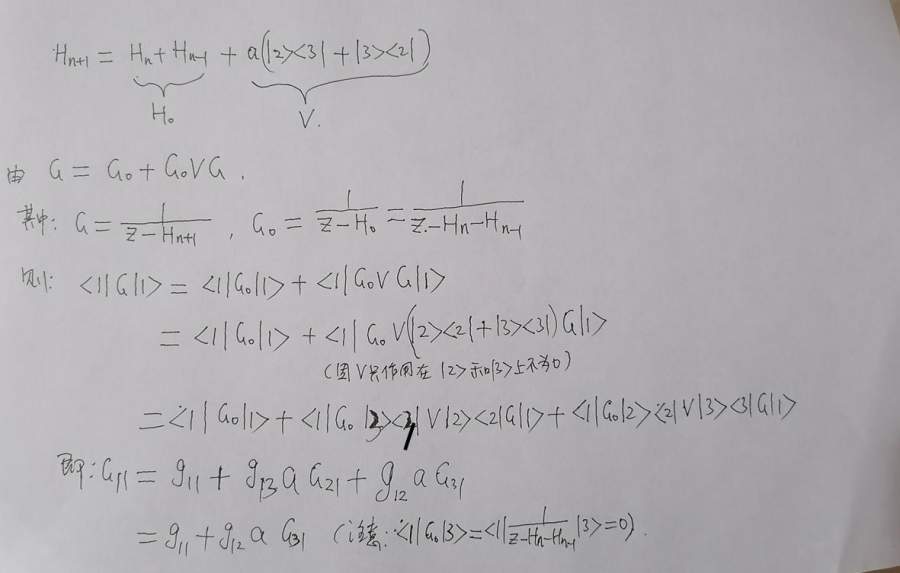 H_{n+1} = H_n + H_{n-1} + a(|2><3| + |3><2|)
H_0 V.
由 G = G_0 + G_0VG .
其中: G = \frac{1}{Z-H_{n+1}} , G_0 = \frac{1}{Z-H_0} = \frac{1}{Z-H_n-H_{n-1}}
则: <1|G|1> = <1|G_0|1> + <1|G_0VG|1>
= <1|G_0|1> + <1|G_0V(|2><2|+|3><3|)G|1>
(因V只作用在|2>和|3>上不为0)
= <1|G_0|1> + <1|G_0|3><3|V|2><2|G|1> + <1|G_0|2><2|V|3><3|G|1>
即: G_{11} = g_{11} + g_{13} a G_{21} + g_{12} a G_{31}
= g_{11} + g_{12} a G_{31} (注意: <1|G_0|3> = <1|\frac{1}{Z-H_n-H_{n-1}}|3> = 0).